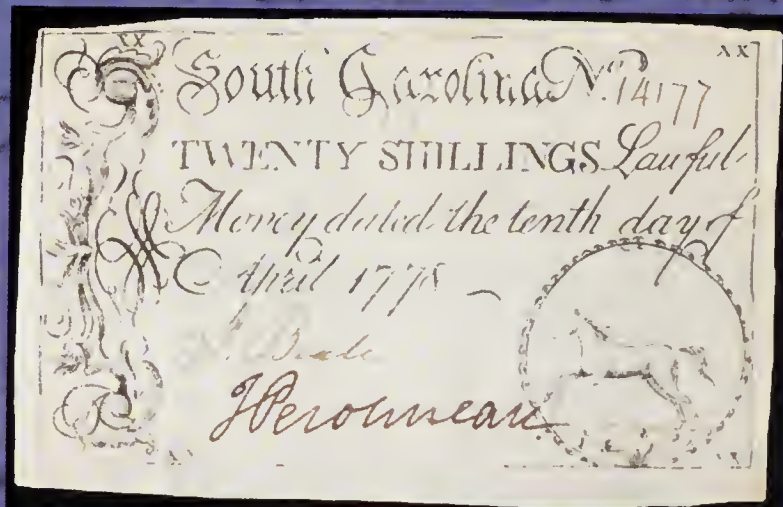 XX
XX
South Carolina No. 14177
TWENTY SHILLINGS Lawful
Money dated the tenth day of
April 1778
Peronneau